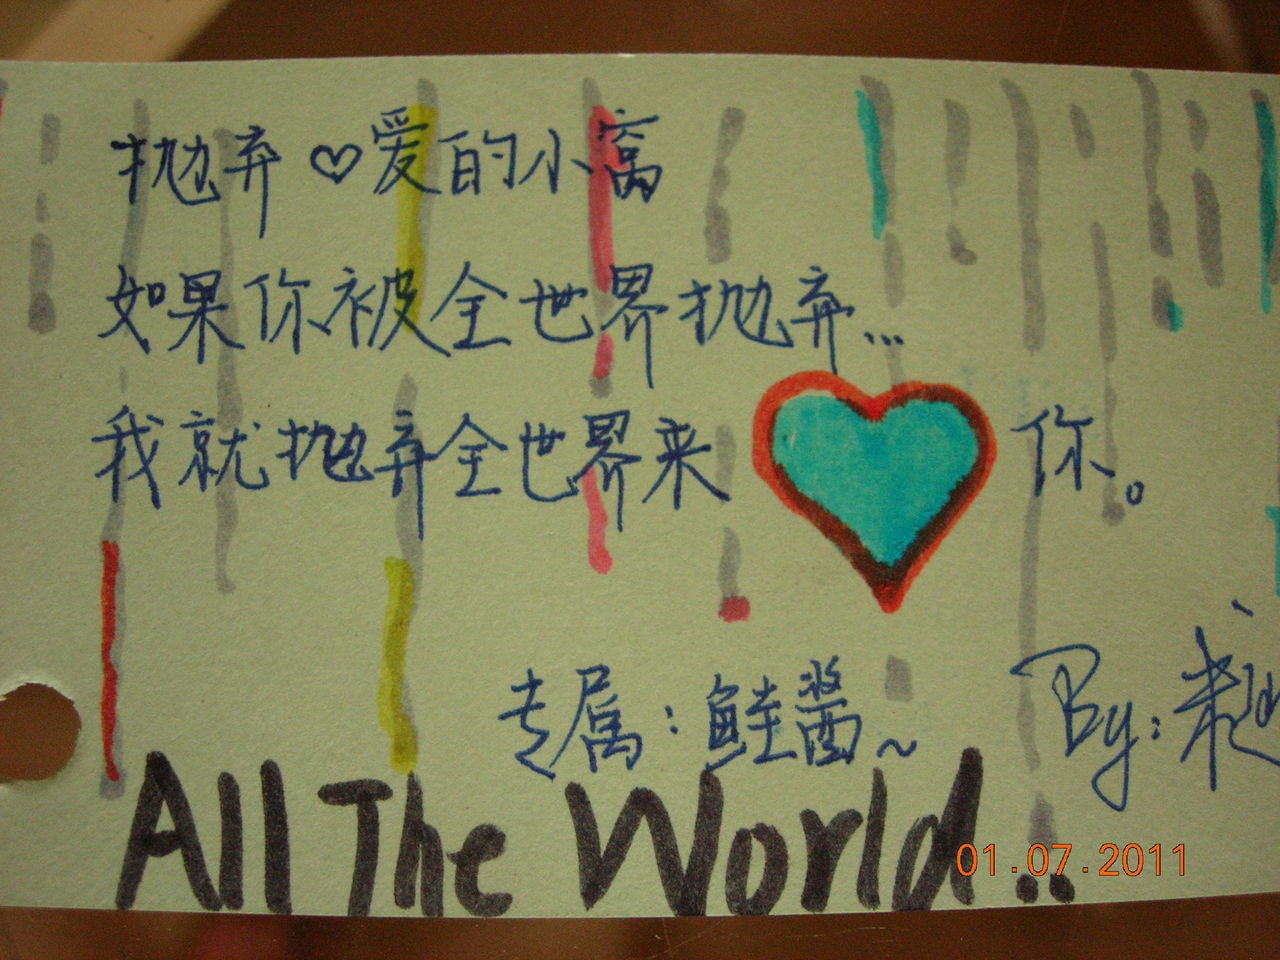 抛弃♡爱的小窝
如果你被全世界抛弃...
我就抛弃全世界来 你。
专属：鲑酱~
By:
All The World..
01.07.2011